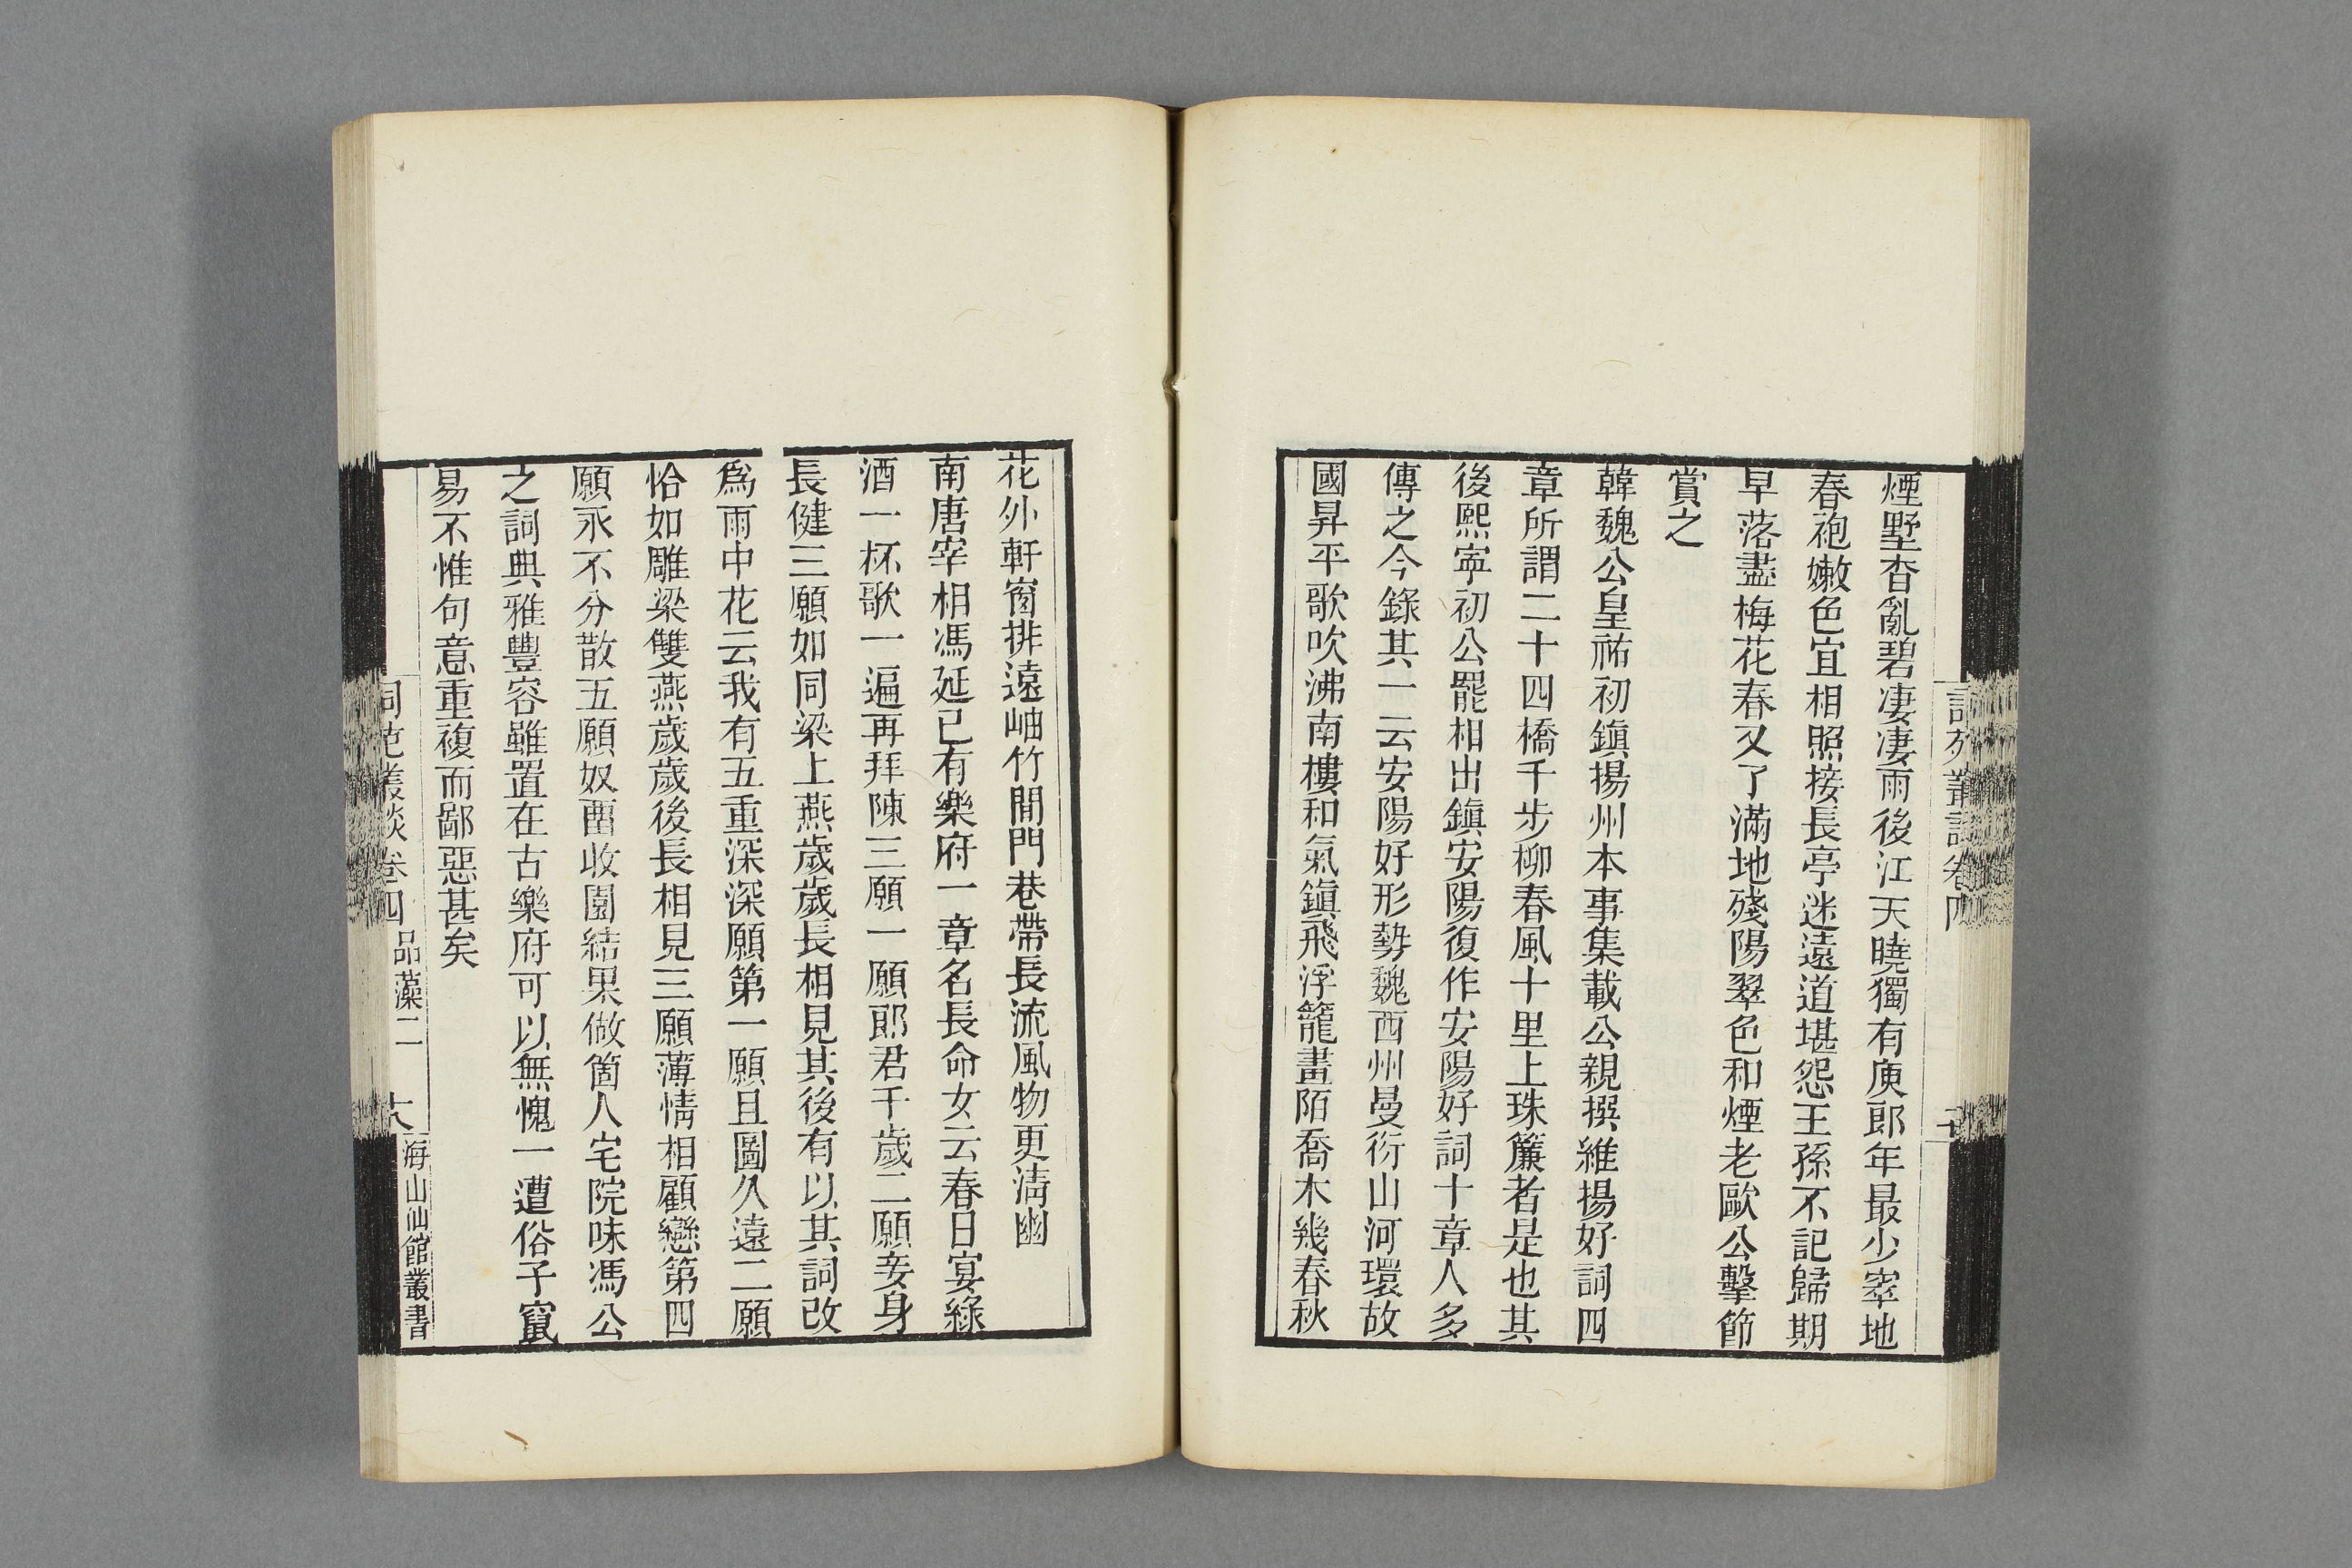 煙墅杳亂碧凄凄雨後江天曉獨有庾郎年最少窣地
春袍嫩色宜相照接長亭迷遠道堪怨王孫不記歸期
早落盡梅花春又了滿地殘陽翠色和煙老歐公擊節
賞之
韓魏公皇祐初鎭揚州本事集載公親撰維揚好詞四
章所謂二十四橋千步柳春風十里上珠簾者是也其
後熙寧初公罷相出鎭安陽復作安陽好詞十章人多
傳之今錄其一云安陽好形勢魏西州曼衍山河環故
國昇平歌吹沸南樓和氣鎭飛浮籠畫陌喬木幾春秋
花外軒窗排遠岫竹閒門巷帶長流風物更淸幽
南唐宰相馮延已有樂府一章名長命女云春日宴綠
酒一杯歌一遍再拜陳三願一願郎君千歲二願妾身
長健三願如同梁上燕歲歲長相見其後有以其詞改
爲雨中花云我有五重深深願第一願且圖久遠二願
恰如雕梁雙燕歲歲後長相見三願薄情相顧戀第四
願永不分散五願奴畱收園結果做箇人宅院味馮公
之詞典雅豐容雖置在古樂府可以無愧一遭俗子竄
易不惟句意重複而鄙惡甚矣
詞苑叢談卷四 品藻二 海山仙館叢書